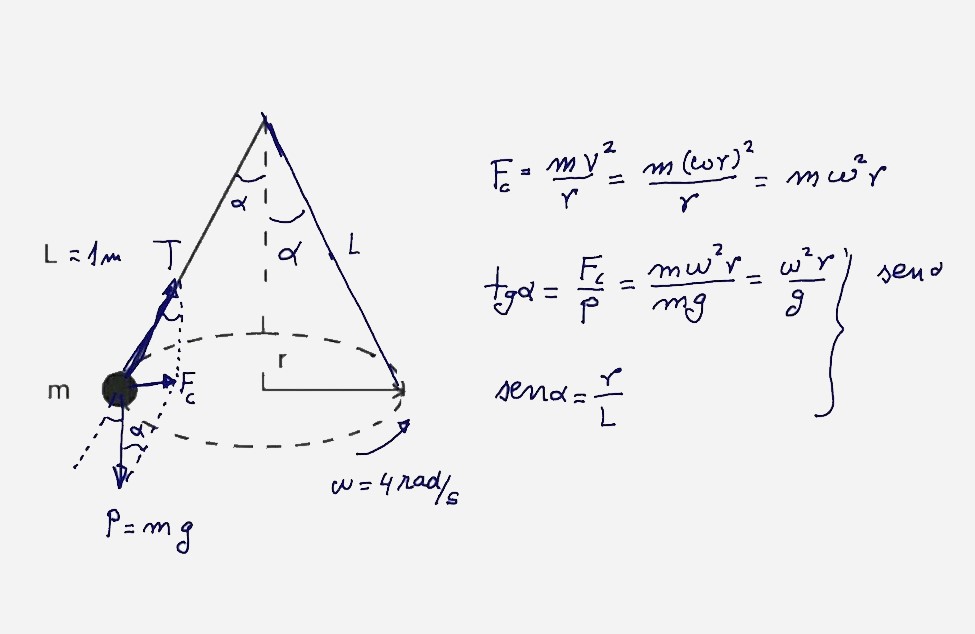 α
α
L
L = 1m
T
r
m
F_c
α
ω = 4 rad/s
P = mg
F_c = mv²/r = m(ωr)²/r = mω²r
tgα = F_c/P = mω²r/mg = ω²r/g } senα
senα = r/L